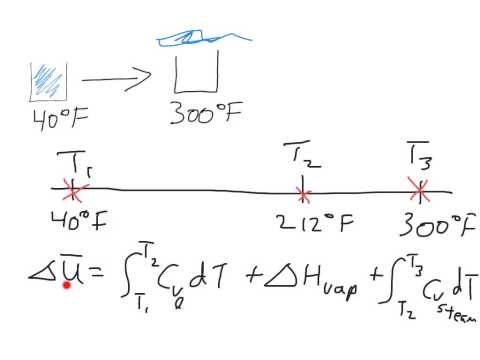 40°F 300°F
T₁ T₂ T₃
40°F 212°F 300°F
ΔU̅ = ∫_{T₁}^{T₂} C_{v_ℓ} dT + ΔH_{vap} + ∫_{T₂}^{T₃} C_{v_{steam}} dT